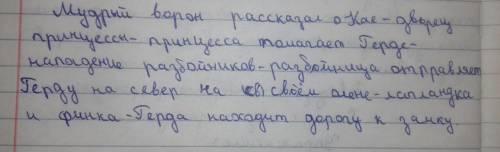 Мудрый ворон рассказал о Кае - дворец
принцессы - принцесса помогает Герде -
нападение разбойников - разбойница отправляет
Герду на север на своём олене - лапландка
и финка - Герда находит дорогу к замку.